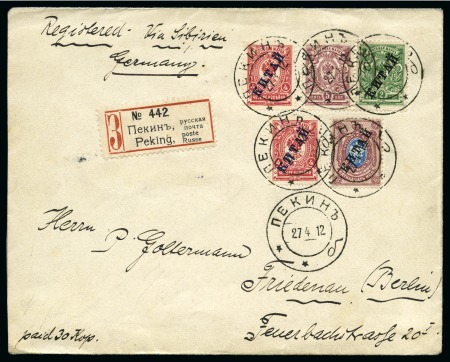 Registered - Via Sibirien
Germany.
З
№ 442
русская
почта
Пекинъ,
poste
Peking,
Russe
ПЕКИНЪ
КИТАЙ
ПЕКИНЪ
КИТАЙ
ПЕКИНЪ
КИТАЙ
КИТАЙ
ПЕКИНЪ
27 4 12
Herrn
P. Goltermann
Friedenau (Berlin)
Feuerbachstrasse 20I
paid 30 Kop.